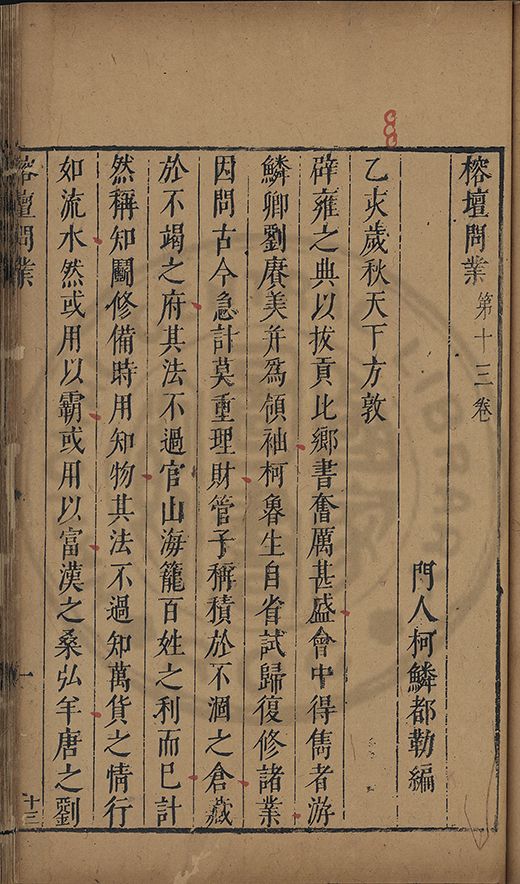 榕壇問業 第十三卷
門人柯鱗都勒編
乙亥歲秋天下方敦
辟雍之典以拔貢比鄉書奮厲甚盛會中得雋者游
鱗卿劉賡美并為領袖柯魯生自省試歸復修諸業
因問古今急計莫重理財管子稱積於不涸之倉藏
於不竭之府其法不過官山海籠百姓之利而已計
然稱知鬭修備時用知物其法不過知萬貨之情行
如流水然或用以霸或用以富漢之桑弘年唐之劉
榕壇問業 一 十三